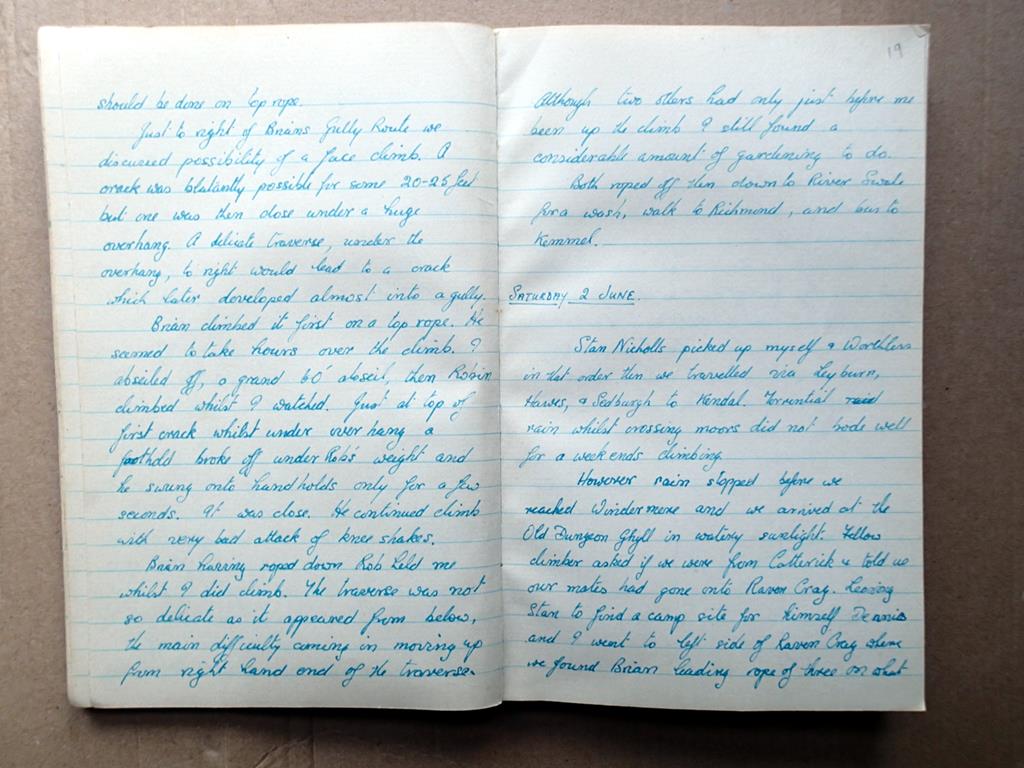 should be done on top rope.
Just to right of Brians Gully Route we
discussed possibility of a face climb. A
crack was blatantly possible for some 20-25 feet
but one was then close under a huge
overhang. A delicate traverse, under the
overhang, to right would lead to a crack
which later developed almost into a gully.
Brian climbed it first on a top rope. He
seemed to take hours over the climb. I
abseiled off, a grand 60' abseil, then Robin
climbed whilst I watched. Just at top of
first crack whilst under overhang a
foothold broke off under Rob's weight and
he swung onto handholds only for a few
seconds. It was close. He continued climb
with very bad attack of knee shakes.
Brian having roped down Rob held me
whilst I did climb. The traverse was not
so delicate as it appeared from below,
the main difficulty coming in moving up
from right hand end of the traverse.
19
Although two others had only just before me
been up the climb I still found a
considerable amount of gardening to do.
Both roped off then down to River Swale
for a wash, walk to Richmond, and bus to
Kemmel.
SATURDAY 2 JUNE.
Stan Nicholls picked up myself &
in that order then we travelled via Leyburn,
Hawes, & Sedburgh to Kendal. Torrential
rain whilst crossing moors did not bode well
for a week ends climbing.
However rain stopped before we
reached Windermere and we arrived at the
Old Dungeon Ghyll in watery sunlight. Fellow
climber asked if we were from Catterick & told us
our mates had gone onto Raven Crag. Leaving
Stan to find a camp site for himself Dennis
and I went to left side of Raven Crag where
we found Brian leading rope of three on what